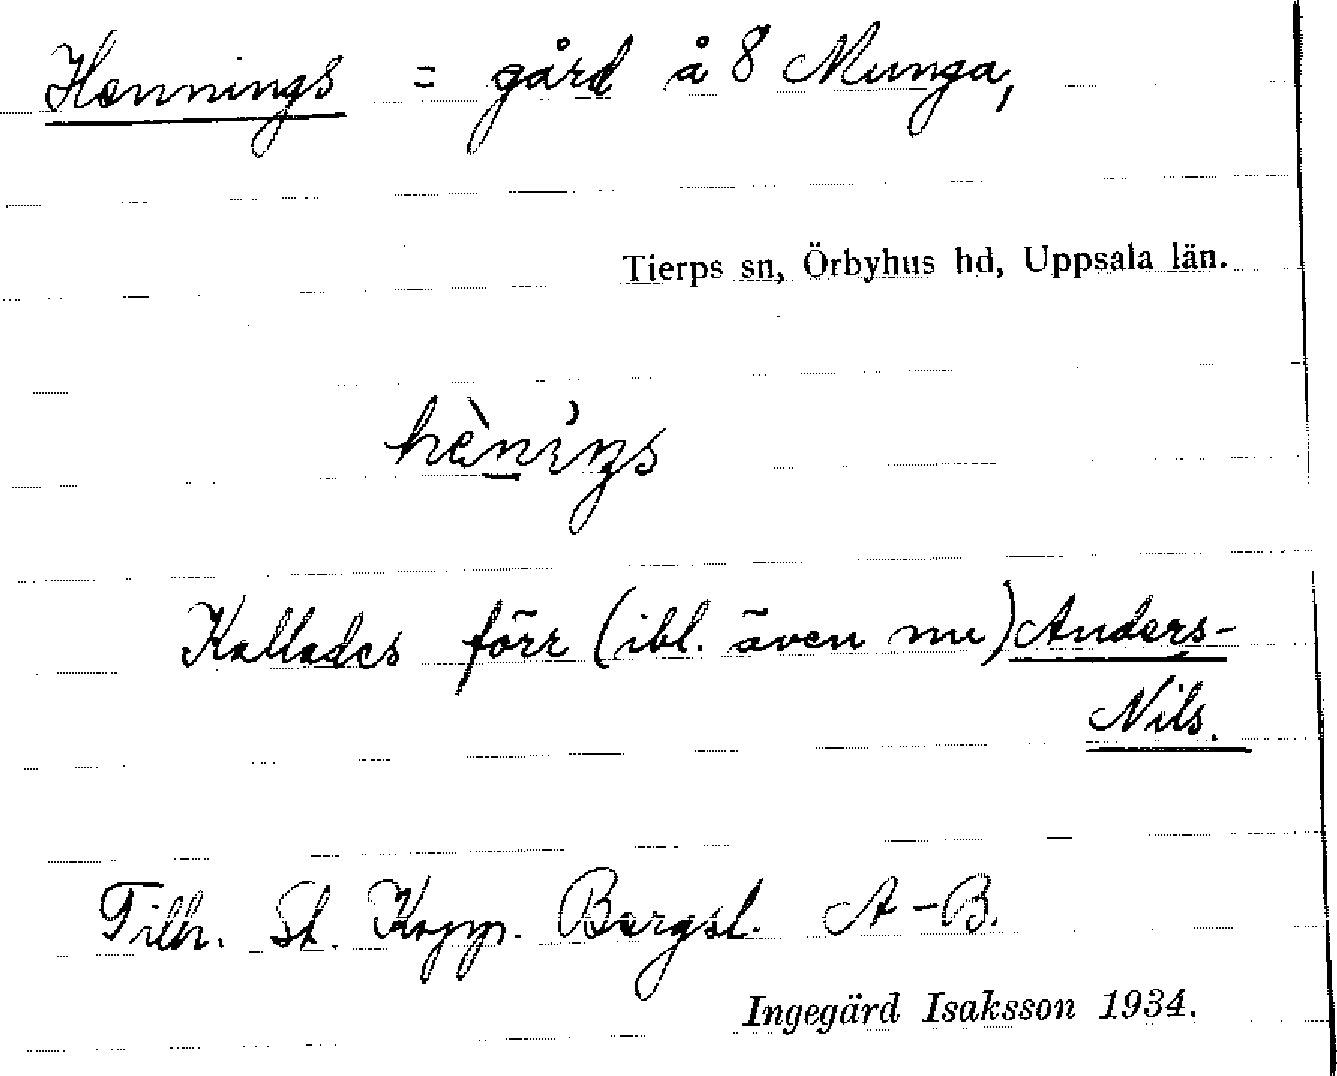 Hennings = gård å 8 Munga,
Tierps sn, Örbyhus hd, Uppsala län.
hèni̇̀ŋs
Kallades förr (ibl. även nu) Anders-
Nils.
Tillh. St. Kopp. Bergsl. A-B.
Ingegärd Isaksson 1934.